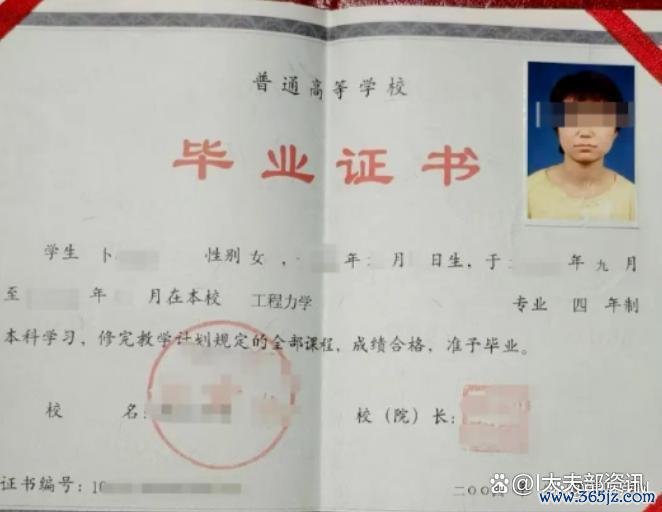 普通高等学校
毕业证书
学生 卜 性别 女, 年 月 日生, 于 年 九 月
至 年 月在本校 工程力学 专业 四 年制
本科学习, 修完教学计划规定的全部课程, 成绩合格, 准予毕业。
校 名:
校（院）长:
证书编号: 10
二〇〇六
大夫部资讯
www.365jz.com